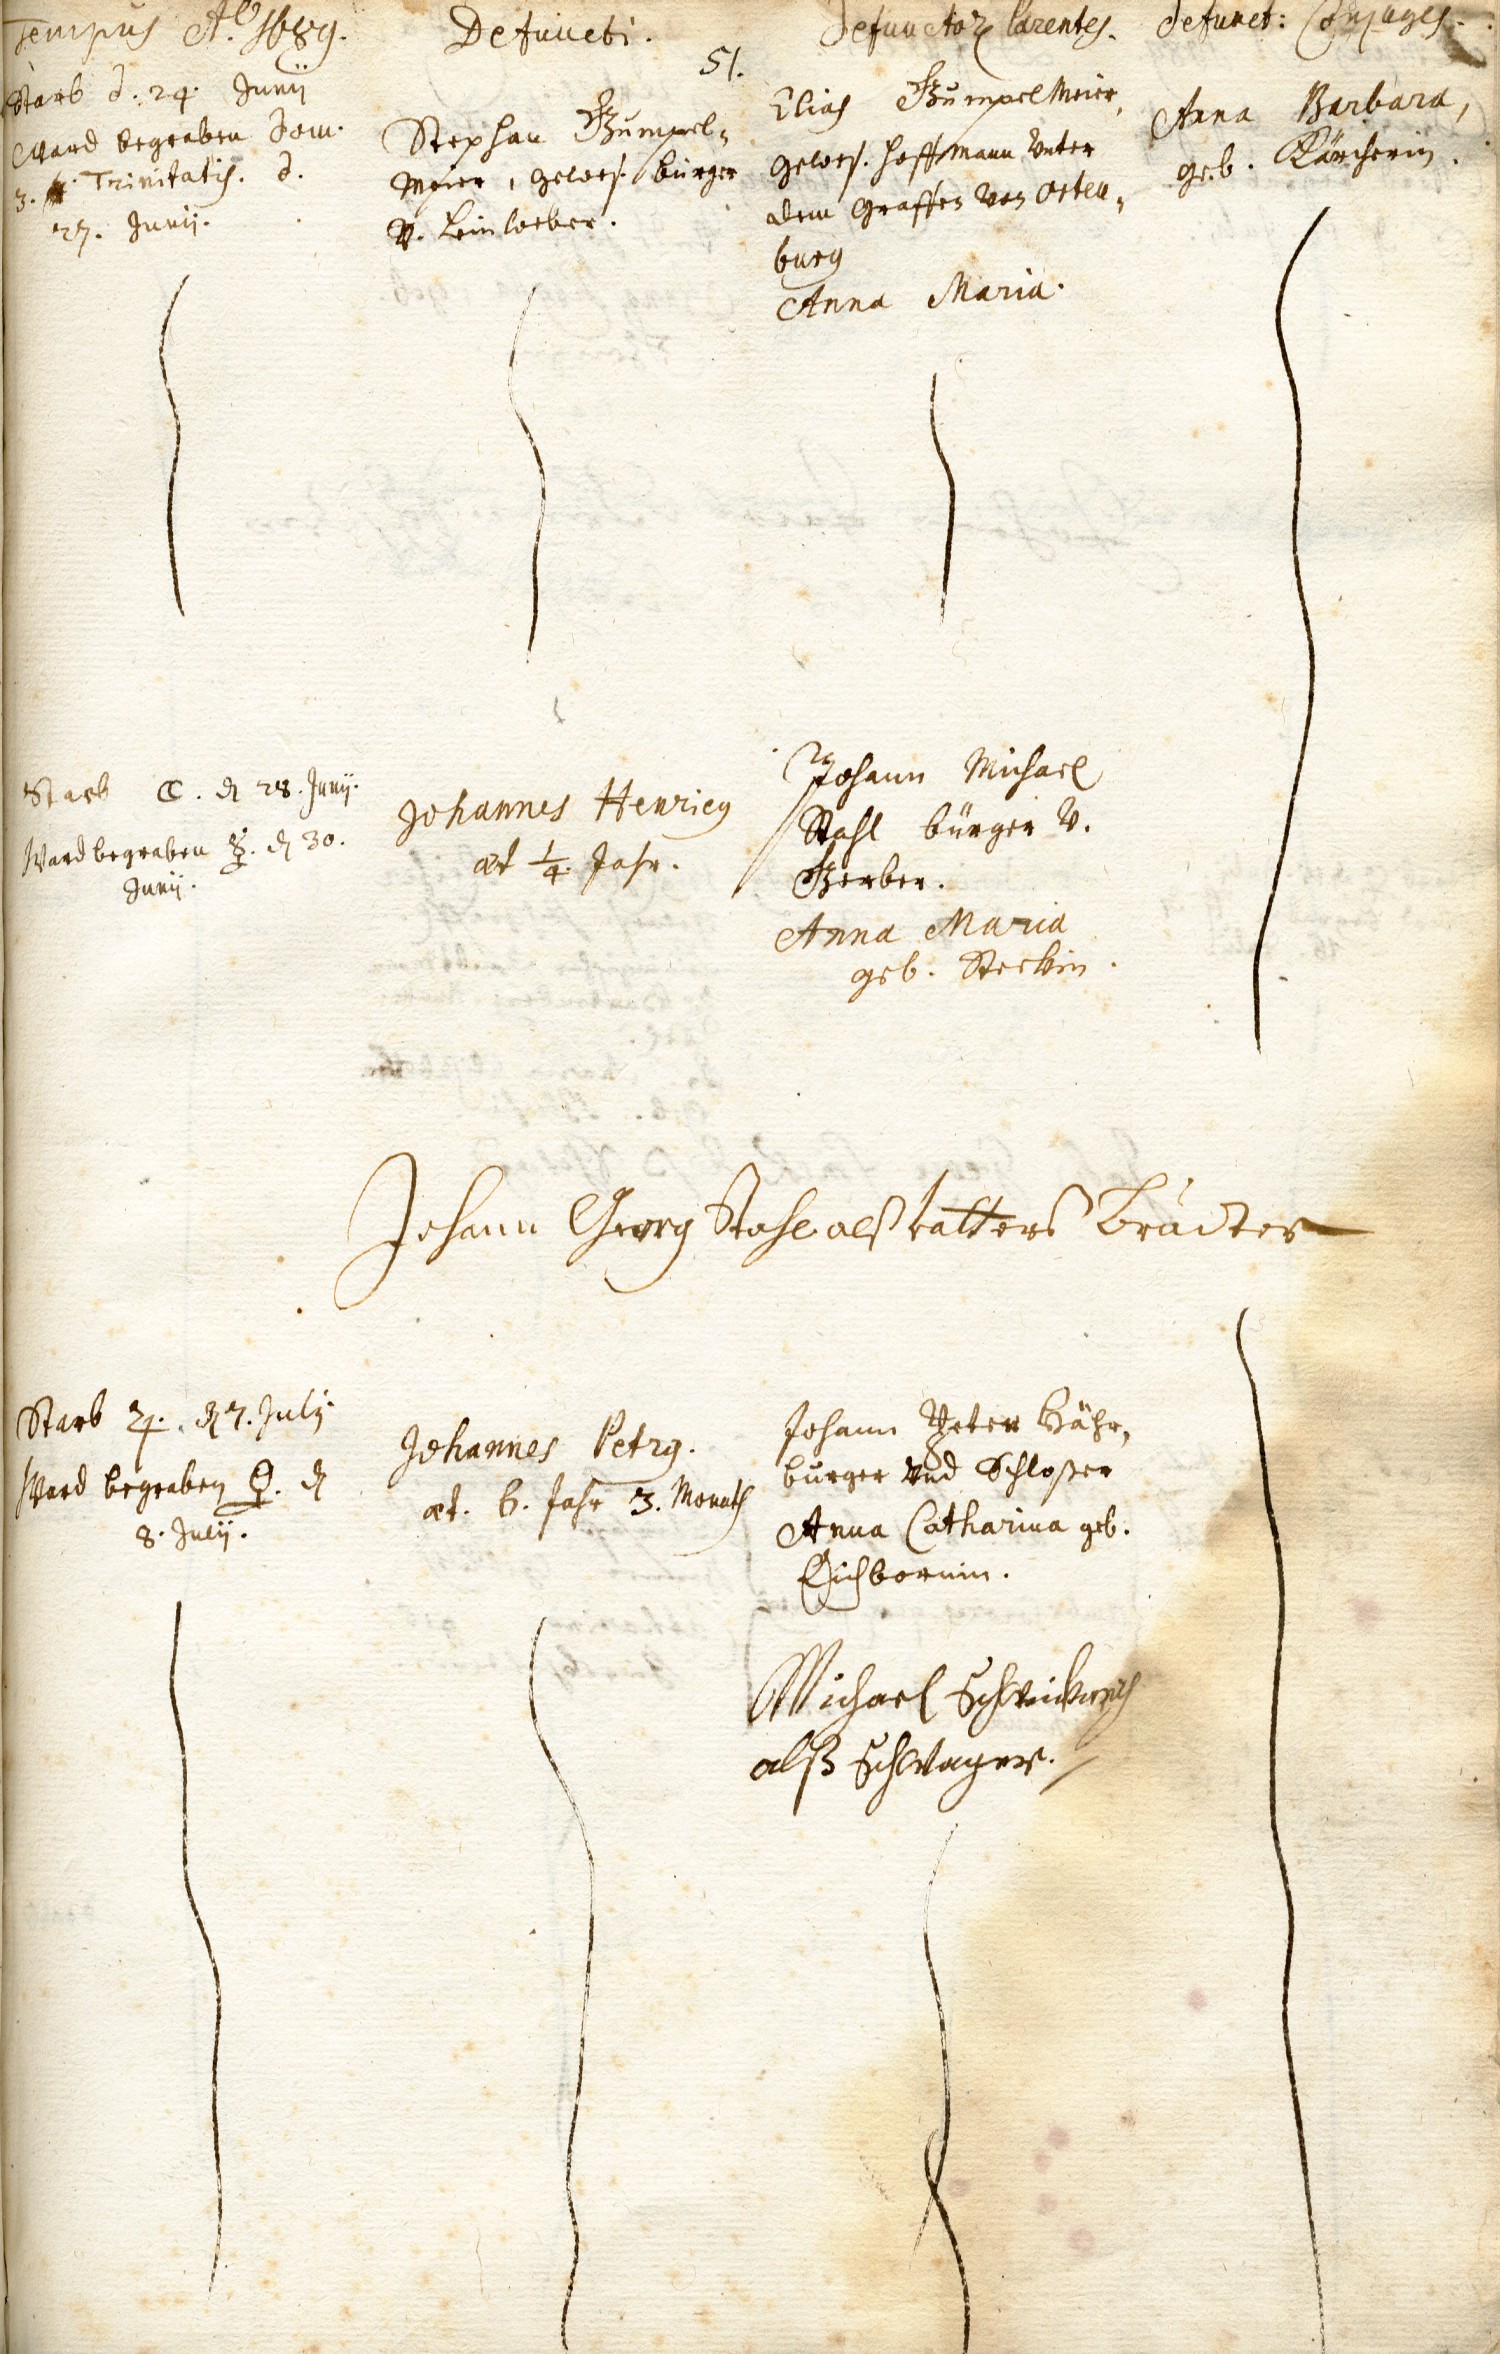 Tempus Aō. 1689.
Defuncti.
Defunctor. Parentes.
defunct: Conjuges.
51.
Starb d. 24. Junij
Ward begraben Dom.
3. Trinitatis. d.
27. Junij.
Stephan Gumpel-
Meier, gewes. bürger
V. Leinweber.
Elias GumpelMeier,
gewes. Hoffmann Vnter
dem Graffen Von Orten-
burg
Anna Maria.
Anna Barbara,
geb. Kärcherin.
Starb ☾. d 28. Junij.
Ward begraben ☿. d 30.
Junij.
Johannes Henricus
æt ¼ Jahr.
Johann Michael
Stahl bürger V.
Gerber.
Anna Maria
geb. Steckin.
Johann Georg Stahl alß Vatters Brudter
Starb ♃. d 7. Julij.
Ward begraben ♀. d
8. Julij.
Johannes Petrus.
æt. 6. Jahr 3. Monath
Johann Peter Bähr,
burger Vnd Schloßer
Anna Catharina geb.
Eichbornin.
Michael
alß Schwager.